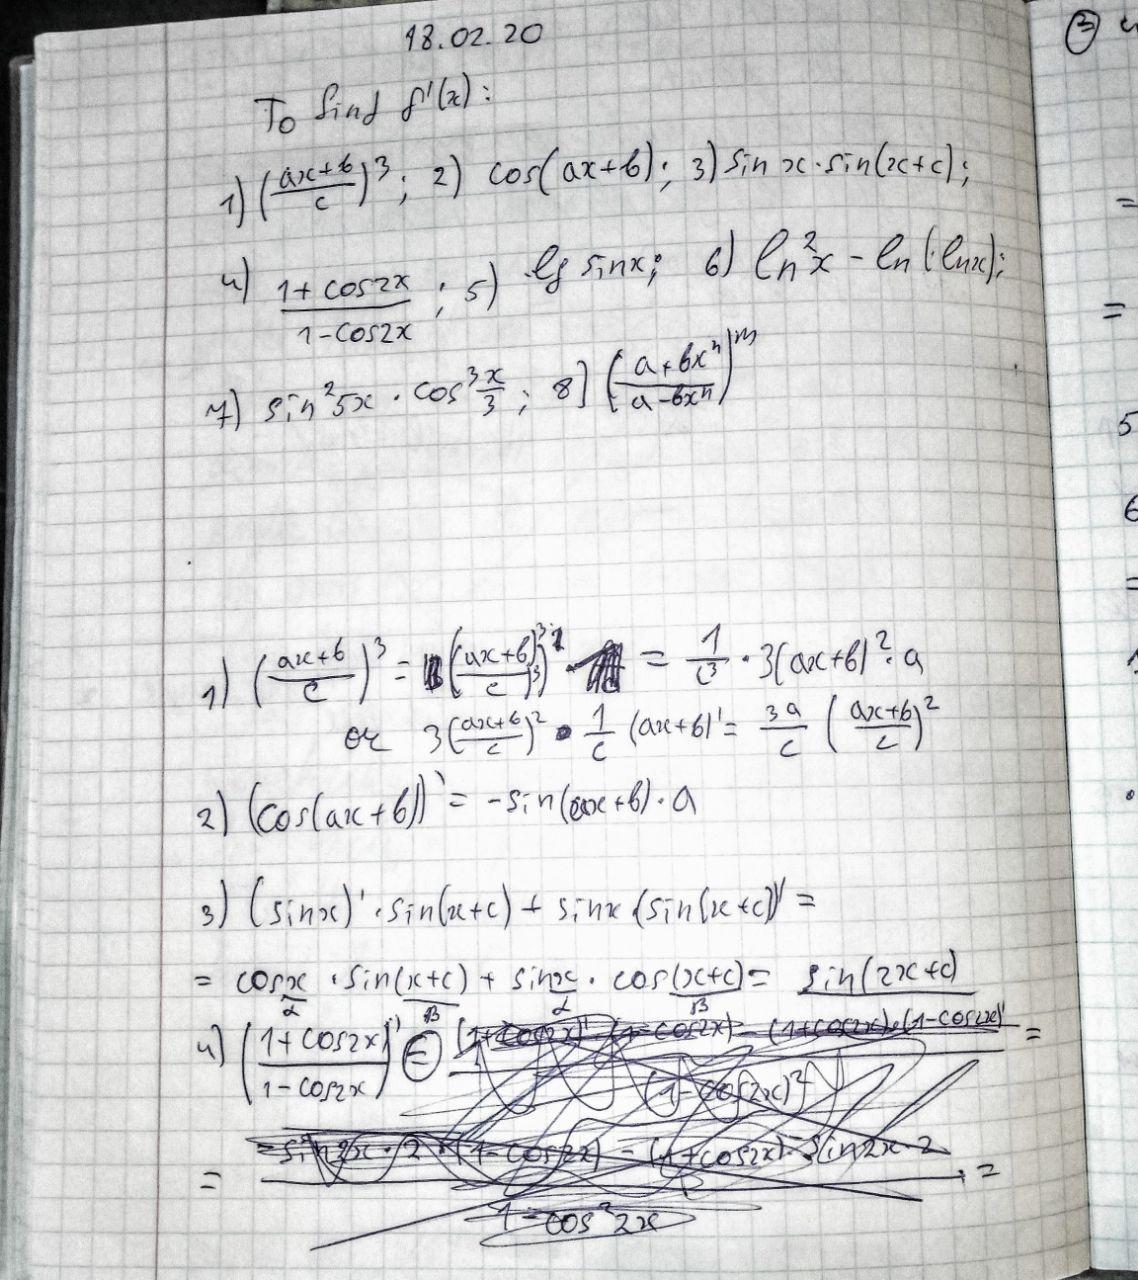 18.02.20
To find f'(x):
1) ((ax+b)/c)^3; 2) cos(ax+b); 3) sin x · sin(x+c);
4) (1+cos2x)/(1-cos2x); 5) lg sinx; 6) ln^2 x - ln(lnx);
7) sin^2 5x · cos^3 x/3; 8) ((a+bx^n)/(a-bx^n))^m
1) ((ax+b)/c)^3 = ((ax+b)^3/c^3)' = 1/c^3 · 3(ax+b)^2 · a
or 3((ax+b)/c)^2 · 1/c (ax+b)' = 3a/c ((ax+b)/c)^2
2) (cos(ax+b))' = -sin(ax+b) · a
3) (sinx)' · sin(x+c) + sinx · (sin(x+c))' =
= cosx · sin(x+c) + sinx · cos(x+c) = sin(2x+c)
α β α β
4) ((1+cos2x)/(1-cos2x))' = ((1+cos2x)' · (1-cos2x) - (1+cos2x) · (1-cos2x)')/(1-cos2x)^2 =
= (-sin2x · 2 · (1-cos2x) - (1+cos2x) · sin2x · 2)/(1-cos^2 2x) =
3
=
=
5
6
=